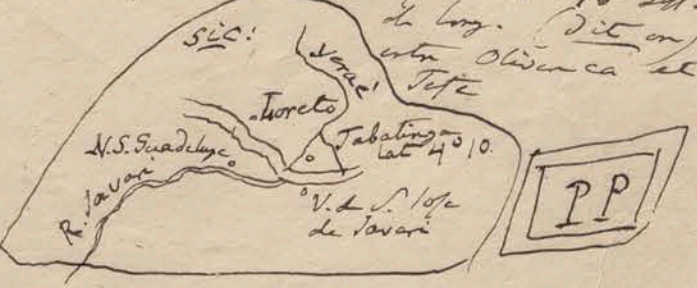 de long. (dit on)
entre Olivença et
Tefe
sic!
Loreto
Tabatinga
lat 4° 10.
N.S. Guadelupe
R. Javari
V. de S. Jose
de Javari
PP